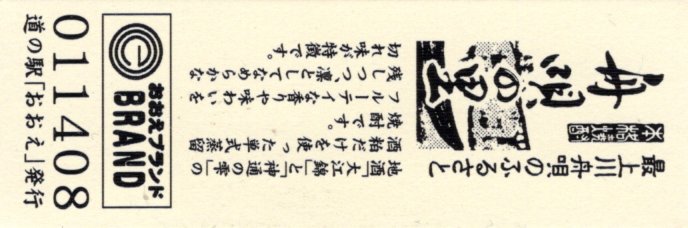 最上川舟唄のふるさと
本格焼酎
舟唄の里
地酒「大江錦」と「神通の雫」の
酒粕だけを使った単式蒸留
焼酎です。
フルーティな香りや味わいを
残しつつ凛としてなめらかな
切れ味が特徴です。
おおえブランド
BRAND
011408
道の駅「おおえ」発行